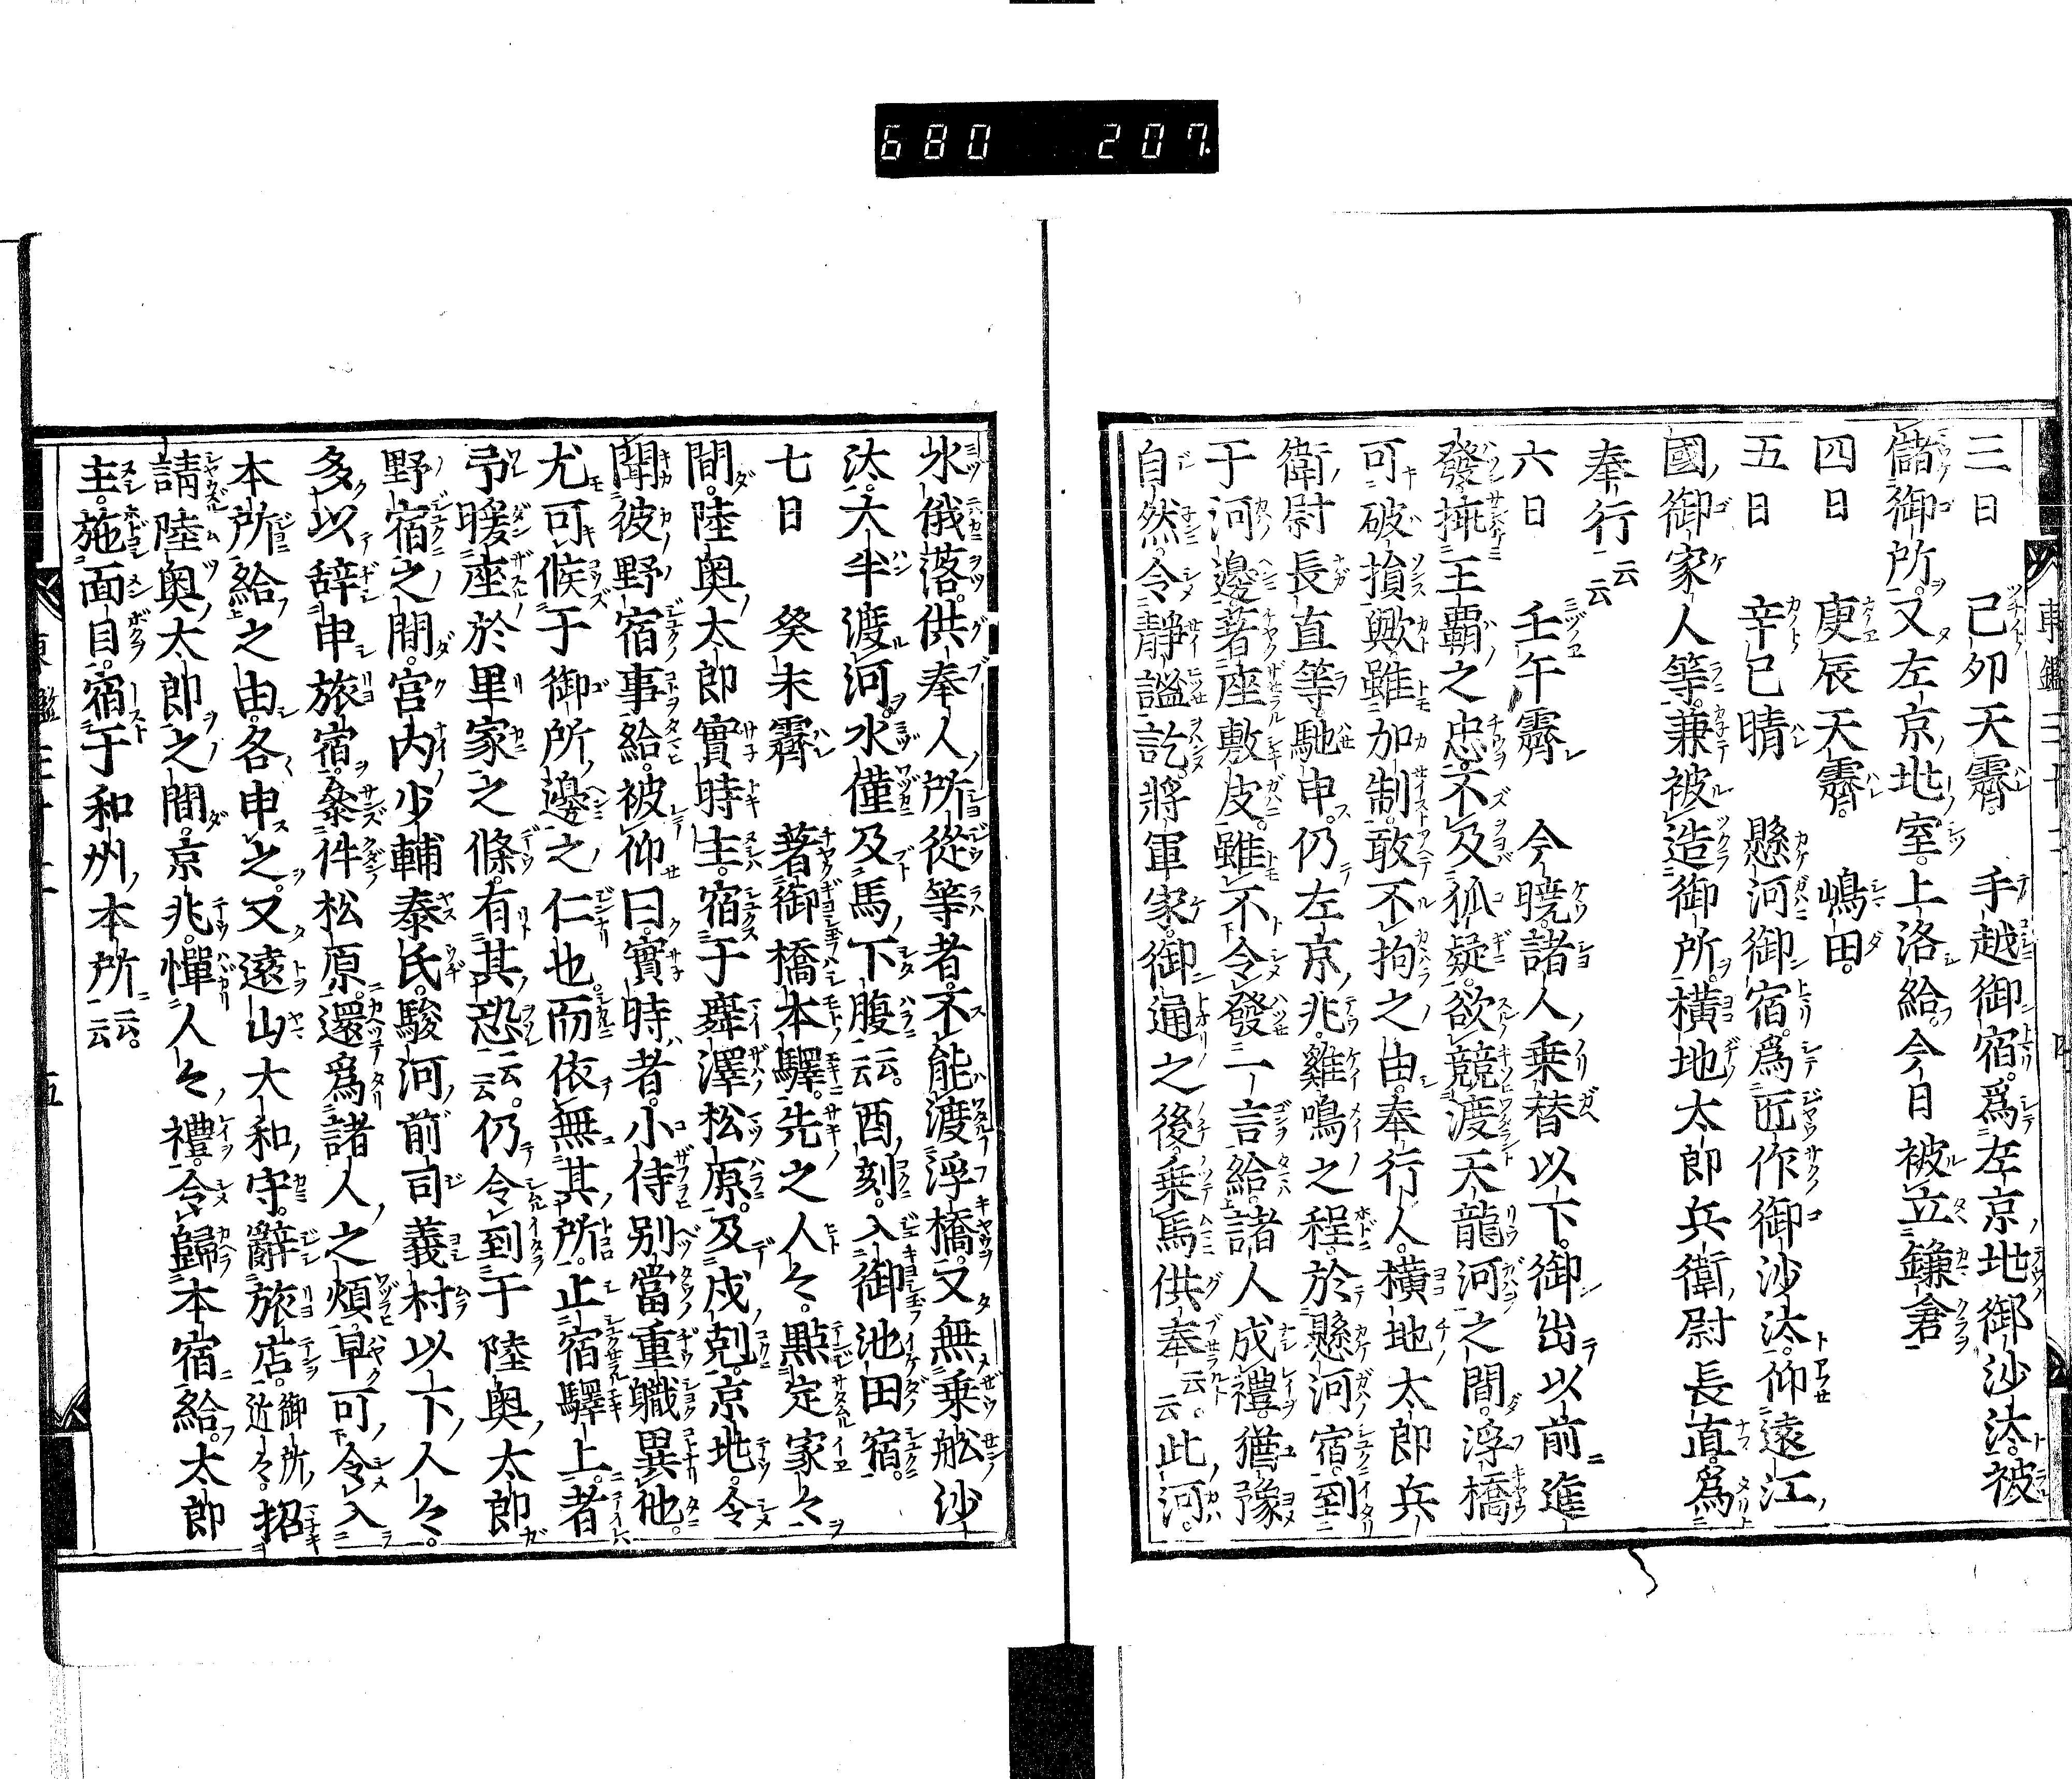 680 207
三日 己夘天霽。 手越御宿。爲左京地御沙汰。被
儲御所。又左京地室。上洛給。今日被立鎌倉
四日 庚辰天霽。 嶋田。
五日 辛巳晴 懸河御宿。爲匠作御沙汰。仰遠江
國御家人等。兼被造御所。横地太郎兵衛尉長直。爲
奉行云云
六日 壬午霽 今曉。諸人乗替以下。御出以前進
發。抽王覇之忠。不及狐疑。欲競渡天龍河之間。浮橋
可破損歟。雖加制。敢不拘之由。奉行人。横地太郎兵
衛尉長直等。馳申。仍左京兆。雞鳴之程。於懸河宿。到
于河邊。著座敷皮。雖不令發一言給。諸人成禮。猶豫
自然。令靜謐訖。將軍家。御通之後。乗馬供奉云云。此河。
水俄落。供奉人所從等者。不能渡浮橋。又無乗舩沙
汰。大半渡河。水僅及馬下腹云云。酉刻。入御池田宿。
七日 癸未霽 著御橋本驛。先之人々。點定家々
間。陸奥太郎實時主。宿于舞澤松原。及戍剋。京地。令
聞彼野宿事給。被仰曰。實時者。小侍別當重職異他。
尤可候于御所邊之仁也。而依無其所。止宿驛上者
弓暖座於里家之條。有其恐云云。仍令到于陸奥太郎
野宿之間。宮内少輔泰氏。駿河前司義村以下人々。
多以辞申旅宿。叅件松原。還爲諸人之煩。早可令入
本所給之由。各申之。又遠山大和守。辭旅店。御所近々。招
請陸奥太郎之間。京兆。憚人々禮。令歸本宿給。太郎
主。施面目。宿于和州本所云云。
五